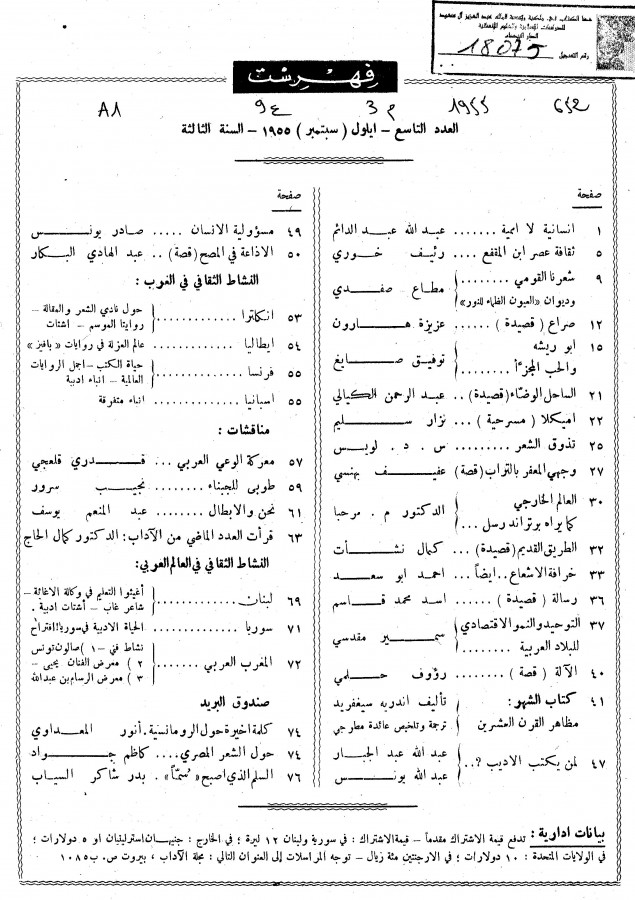 هذا الكتاب
رقم التسجيل 18075
فهرست
A1 ع9 م3 1955 652
العدد التاسع - ايلول ( سبتمبر ) ١٩٥٥ - السنة الثالثة
صفحة
١ انسانية لا ايمية ....... عبد الله عبد الدائم
٥ ثقافة عصر ابن المقفع .... رئيف خوري
٩ شعرنا القومي .........
وديوان «العيون الظماء للنور» مطاع صفدي
١٢ صراع ( قصيدة ) ...... عزيزة هارون
١٥ ابو ريشه
والحب المجزأ ......... توفيق صايغ
٢١ الساحل الوضاء (قصيدة) .. عبد الرحمن الكيالي
٢٢ اميكلا ( مسرحية ) ... نزار سليم
٢٥ تذوق الشعر ......... س . د . لويس
٢٧ وجهي المعفر بالتراب (قصة) عفيف بهنسي
٣٠ العالم الخارجي
كما يراه برتراند رسل ... الدكتور م . مرحبا
٣٢ الطريق القديم (قصيدة) ... كمال نشأت
٣٣ خرافة الاشعاع .. ايضاً ... احمد ابو سعد
٣٦ رسالة ( قصيدة ) ..... اسد محمد قاسم
٣٧ التوحيد والنمو الاقتصادي
للبلاد العربية ......... سمير مقدسي
٤٠ الآلة ( قصة ) ........ رؤوف حلمي
٤١ كتاب الشهر : تأليف اندريه سيغفريد
مظاهر القرن العشرين ترجمة وتلخيص عائدة مطرجي
٤٧ لمن يكتب الاديب ؟.. عبد الله عبد الجبار
عبد الله يونس
صفحة
٤٩ مسؤولية الانسان ..... صادر يونس
٥٠ الاذاعة في المصح (قصة) .. عبد الهادي البكار
النشاط الثقافي في الغرب :
٥٣ انكلترا ............ حول نادي الشعر والمقالة -
روايتا الموسم - اشتات
٥٤ ايطاليا ............ عالم العزلة في روايات « بافيز »
٥٥ فرنسا ............ حياة الكتب - اجمل الروايات
العالمية - انباء ادبية
٥٥ اسبانيا ............ انباء متفرقة
مناقشات :
٥٧ معركة الوعي العربي ... قدري قلعجي
٥٩ طوبى للجبناء ........ نجيب سرور
٦١ نحن والابطال ........ عبد المنعم يوسف
٦٣ قرأت العدد الماضي من الآداب : الدكتور كمال الحاج
النشاط الثقافي في العالم العربي :
٦٩ لبنان ............ أغيثوا التعليم في وكالة الاغاثة -
شاعر غاب - أشتات ادبية .
٧١ سوريا ............ الحياة الادبية في سوريا ! اقتراح
٧٢ المغرب العربي ....... نشاط فني - ١ ) صالون تونس
٢ ) معرض الفنان يحيى -
٣ ) معرض الرسام بن عبدالله
صندوق البريد
٧٤ كلمة اخيرة حول الرومانسية . أنور المعداوي
٧٤ حول الشعر المصري .... كاظم جواد
٧٦ السلم الذي اصبح « سُمّاً » . بدر شاكر السياب
بيانات ادارية : تدفع قيمة الاشتراك مقدماً - قيمة الاشتراك : في سورية ولبنان ١٢ ليرة ؛ في الخارج : جنيهان استرلينيان او ٥ دولارات ؛
في الولايات المتحدة : ١٠ دولارات ؛ في الارجنتين مئة ريال - توجه المراسلات إلى العنوان التالي : مجلة الآداب ، بيروت ص . ب ١٠٨٥